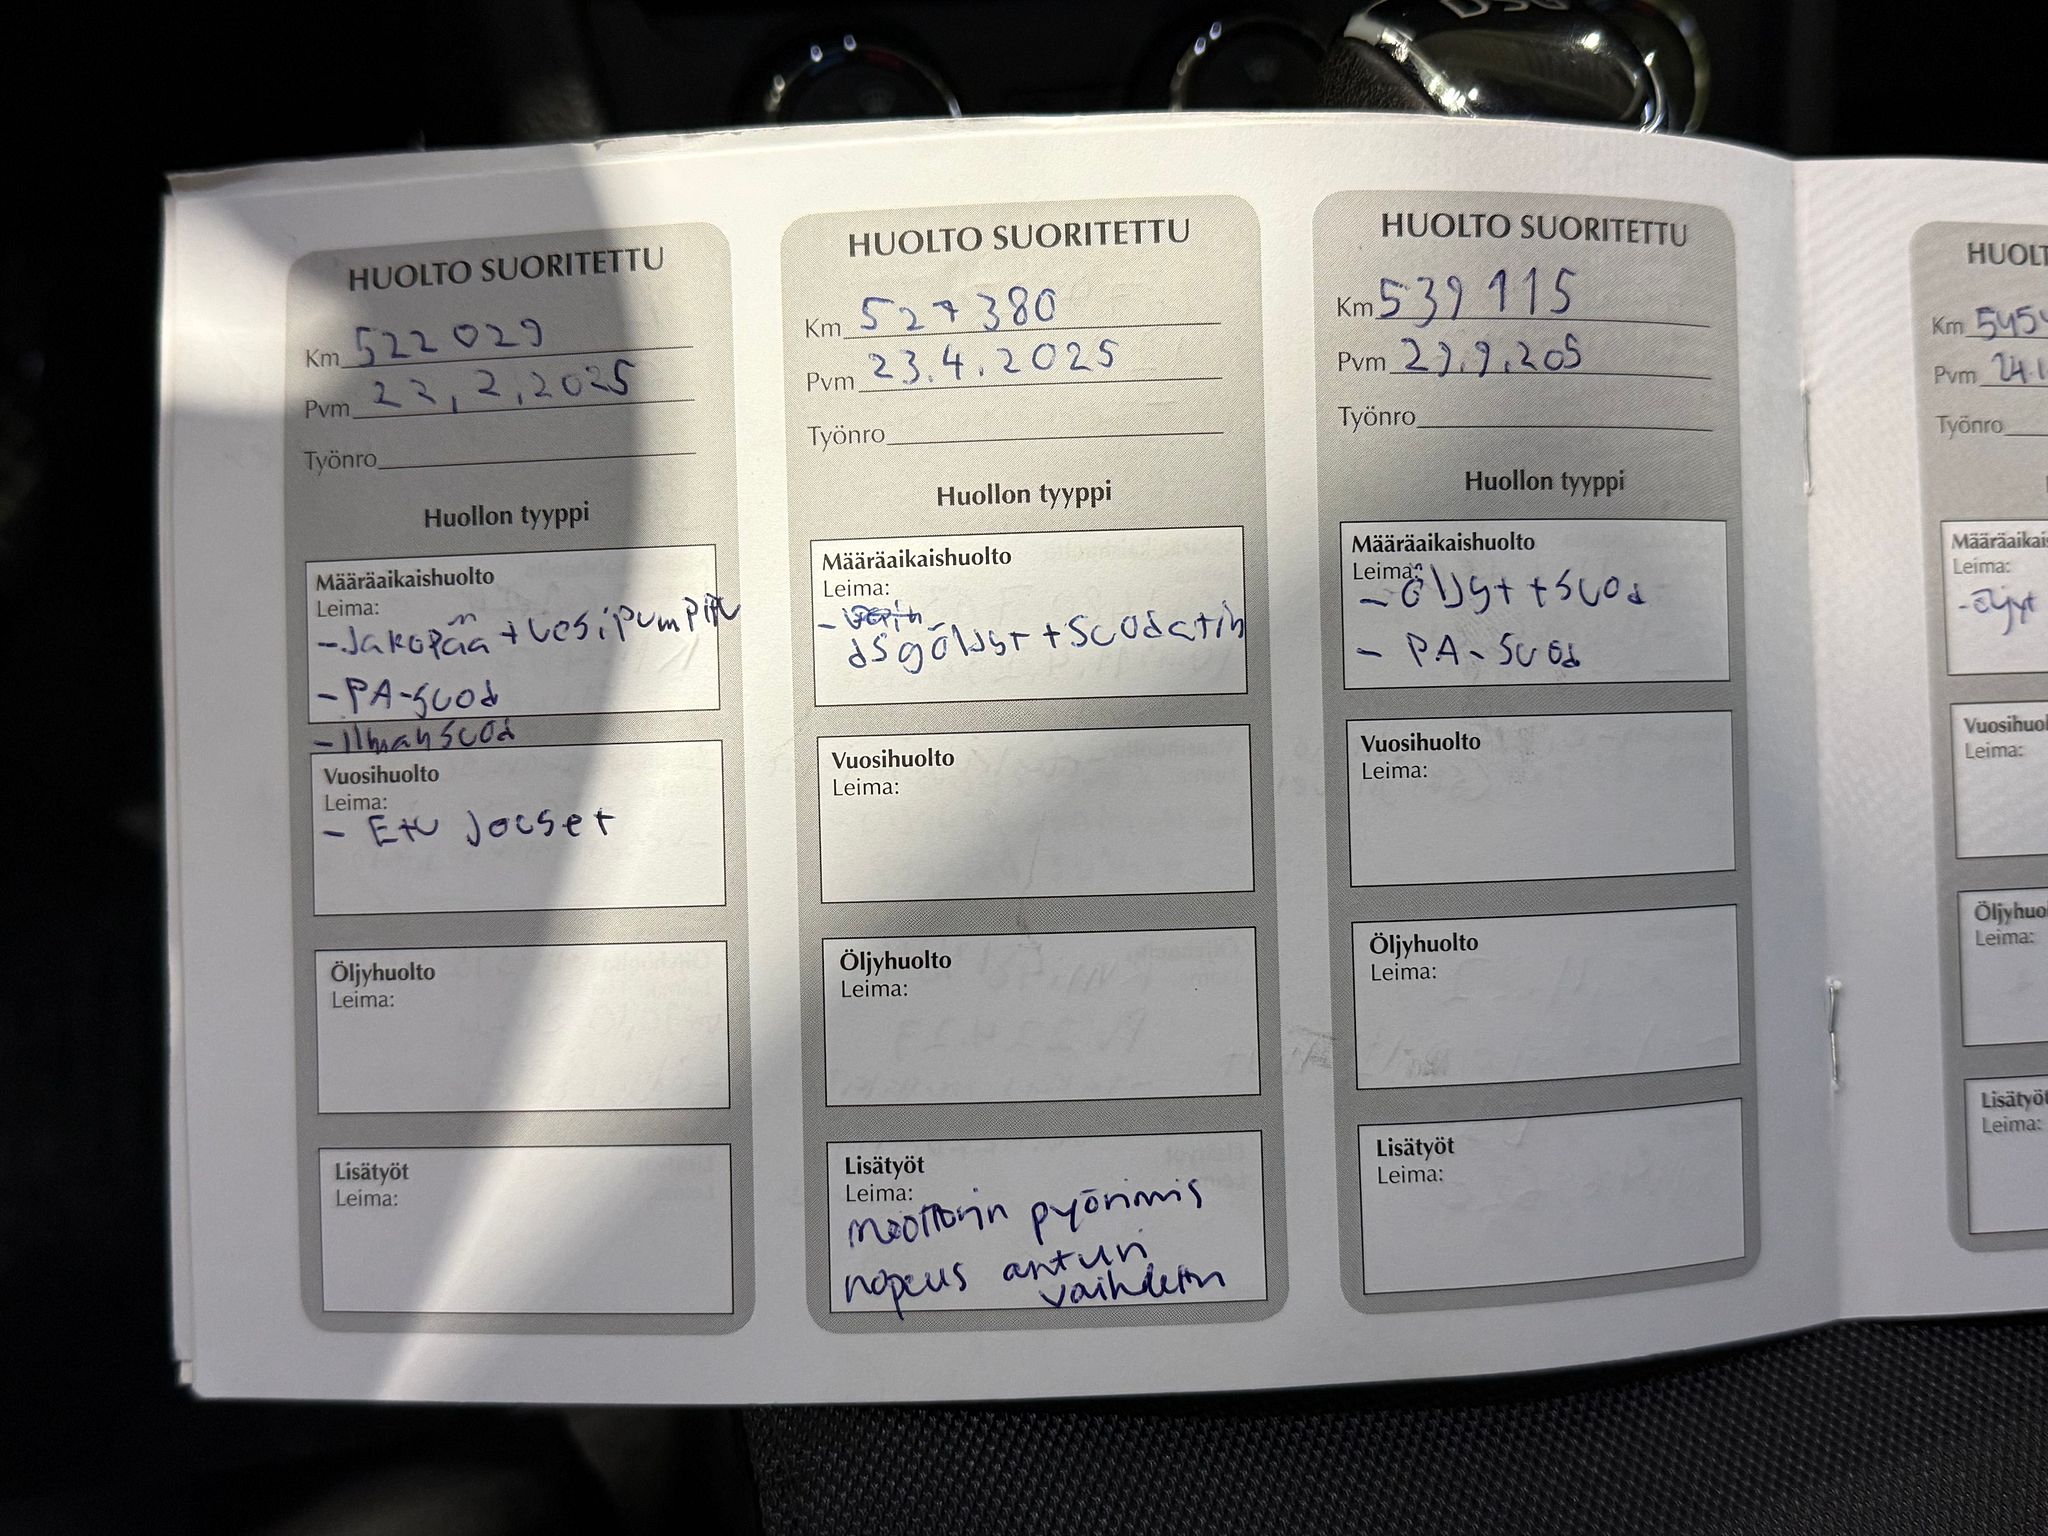 DSG
HUOLTO SUORITETTU
Km 522 029
Pvm 22.2.2025
Työnro
Huollon tyyppi
Määräaikaishuolto
Leima:
- Jakopää + vesipumppu
- PA-suod
- Ilmansuod
Vuosihuolto
Leima:
- Etu jouset
Öljyhuolto
Leima:
Lisätyöt
Leima:
HUOLTO SUORITETTU
Km 527 380
Pvm 23.4.2025
Työnro
Huollon tyyppi
Määräaikaishuolto
Leima:
-
dsg öljyt + suodatin
Vuosihuolto
Leima:
Öljyhuolto
Leima:
Lisätyöt
Leima:
moottorin pyörimis
nopeus anturi
vaihdettu
HUOLTO SUORITETTU
Km 539 115
Pvm 29.9.205
Työnro
Huollon tyyppi
Määräaikaishuolto
Leima:
- öljyt + suod
- PA-suod
Vuosihuolto
Leima:
Öljyhuolto
Leima:
Lisätyöt
Leima:
HUOLT
Km 5454
Pvm 24.1
Työnro
Määräaikais
Leima:
- öljyt
Vuosihuol
Leima:
Öljyhuo
Leima:
Lisätyöt
Leima: